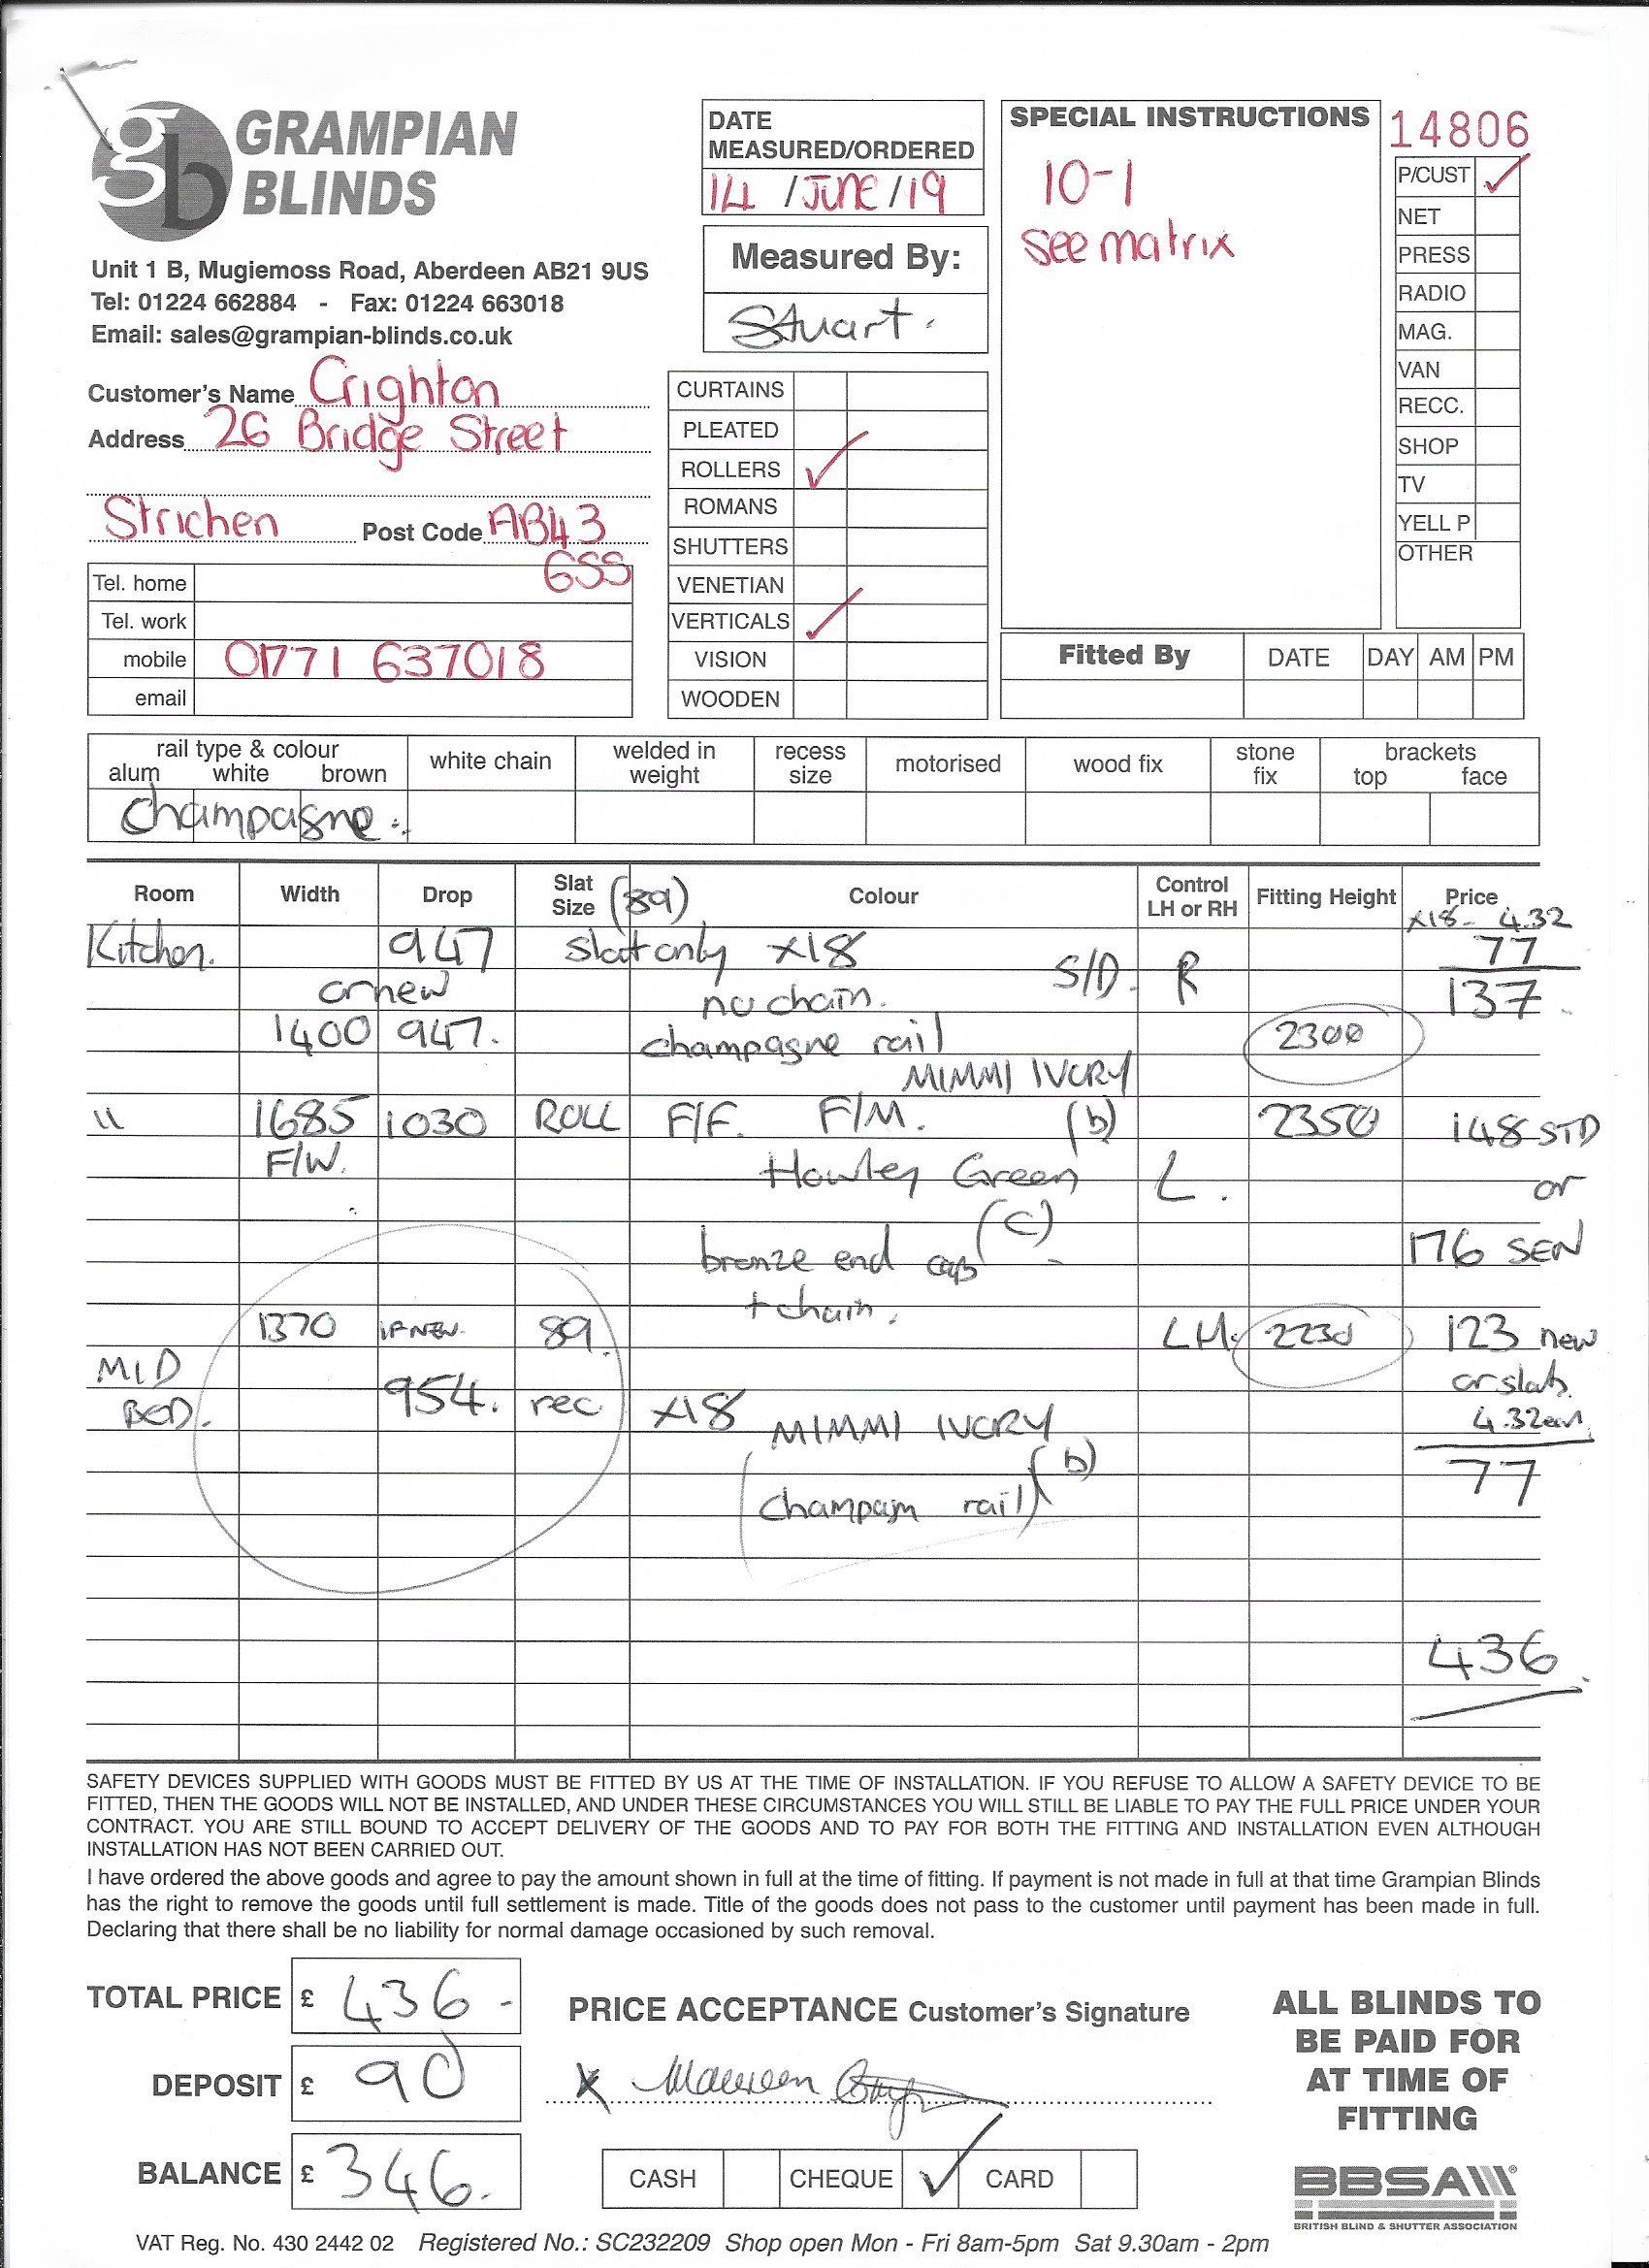 gb GRAMPIAN
BLINDS
Unit 1 B, Mugiemoss Road, Aberdeen AB21 9US
Tel: 01224 662884 - Fax: 01224 663018
Email: sales@grampian-blinds.co.uk
Customer's Name Crighton
Address 26 Bridge Street
Strichen Post Code AB43
6SS
Tel. home
Tel. work
mobile 01771 637018
email
DATE
MEASURED/ORDERED
14 / JUNE / 19
Measured By:
Stuart.
CURTAINS
PLEATED
ROLLERS ✓
ROMANS
SHUTTERS
VENETIAN
VERTICALS ✓
VISION
WOODEN
SPECIAL INSTRUCTIONS
10-1
see matrix
14806
P/CUST ✓
NET
PRESS
RADIO
MAG.
VAN
RECC.
SHOP
TV
YELL P
OTHER
Fitted By DATE DAY AM PM
rail type & colour white chain welded in weight recess size motorised wood fix stone fix brackets
alum white brown top face
champagne
Room Width Drop Slat Size (89) Colour Control LH or RH Fitting Height Price
x18 - 4.32
Kitchen. 947 slat only x18 S/D. R 77
or new no chain. 137
1400 947. champagne rail 2300
MIMMI IVORY
" 1685 1030 ROLL F/F. F/M. (b) 2350 148 STD
F/W. Howley Green L. or
(c)
bronze end cap 176 SEN
+ chain.
1370 IF NEW. 89. LH. 2230 123 new
MID or slats.
BED. 954. rec x18 MIMMI IVORY 4.32
(b) 77
(champagn rail)
436
SAFETY DEVICES SUPPLIED WITH GOODS MUST BE FITTED BY US AT THE TIME OF INSTALLATION. IF YOU REFUSE TO ALLOW A SAFETY DEVICE TO BE
FITTED, THEN THE GOODS WILL NOT BE INSTALLED, AND UNDER THESE CIRCUMSTANCES YOU WILL STILL BE LIABLE TO PAY THE FULL PRICE UNDER YOUR
CONTRACT. YOU ARE STILL BOUND TO ACCEPT DELIVERY OF THE GOODS AND TO PAY FOR BOTH THE FITTING AND INSTALLATION EVEN ALTHOUGH
INSTALLATION HAS NOT BEEN CARRIED OUT.
I have ordered the above goods and agree to pay the amount shown in full at the time of fitting. If payment is not made in full at that time Grampian Blinds
has the right to remove the goods until full settlement is made. Title of the goods does not pass to the customer until payment has been made in full.
Declaring that there shall be no liability for normal damage occasioned by such removal.
TOTAL PRICE £ 436 -
DEPOSIT £ 90
BALANCE £ 346.
PRICE ACCEPTANCE Customer's Signature
x Maureen
CASH CHEQUE ✓ CARD
ALL BLINDS TO
BE PAID FOR
AT TIME OF
FITTING
BBSA
BRITISH BLIND & SHUTTER ASSOCIATION
VAT Reg. No. 430 2442 02 Registered No.: SC232209 Shop open Mon - Fri 8am-5pm Sat 9.30am - 2pm